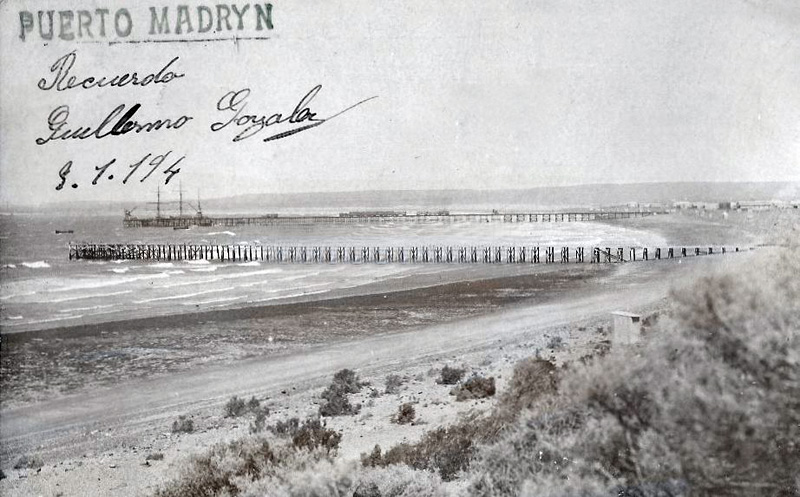 PUERTO MADRYN
Recuerdo
Guillermo Gonzalez
8.1.194